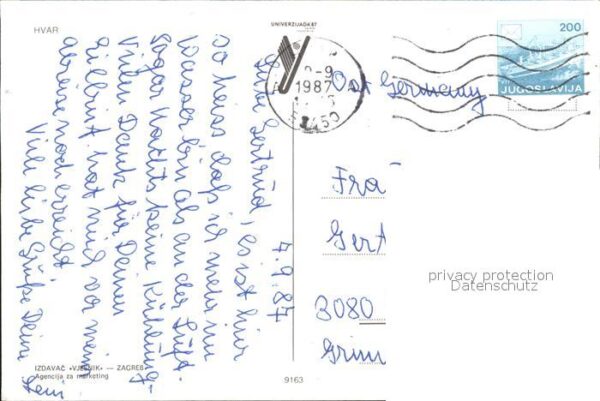 HVAR
UNIVERZIJADA 87
-9
1987
200
JUGOSLAVIJA
Ost Germany
4.9.87
Liebe Gertrud, es ist hier
so heiss daß ich mehr im
Wasser bin als an der Luft.
Sogar nachts keine Kühlung.
Vielen Dank für Deinen
hat mich vor meiner
noch erreicht
Viele liebe Grüße Deine
Leni
Fra
Gert
3080
Grim
privacy protection
Datenschutz
IZDAVAČ »VJESNIK« — ZAGREB
Agencija za marketing
9163